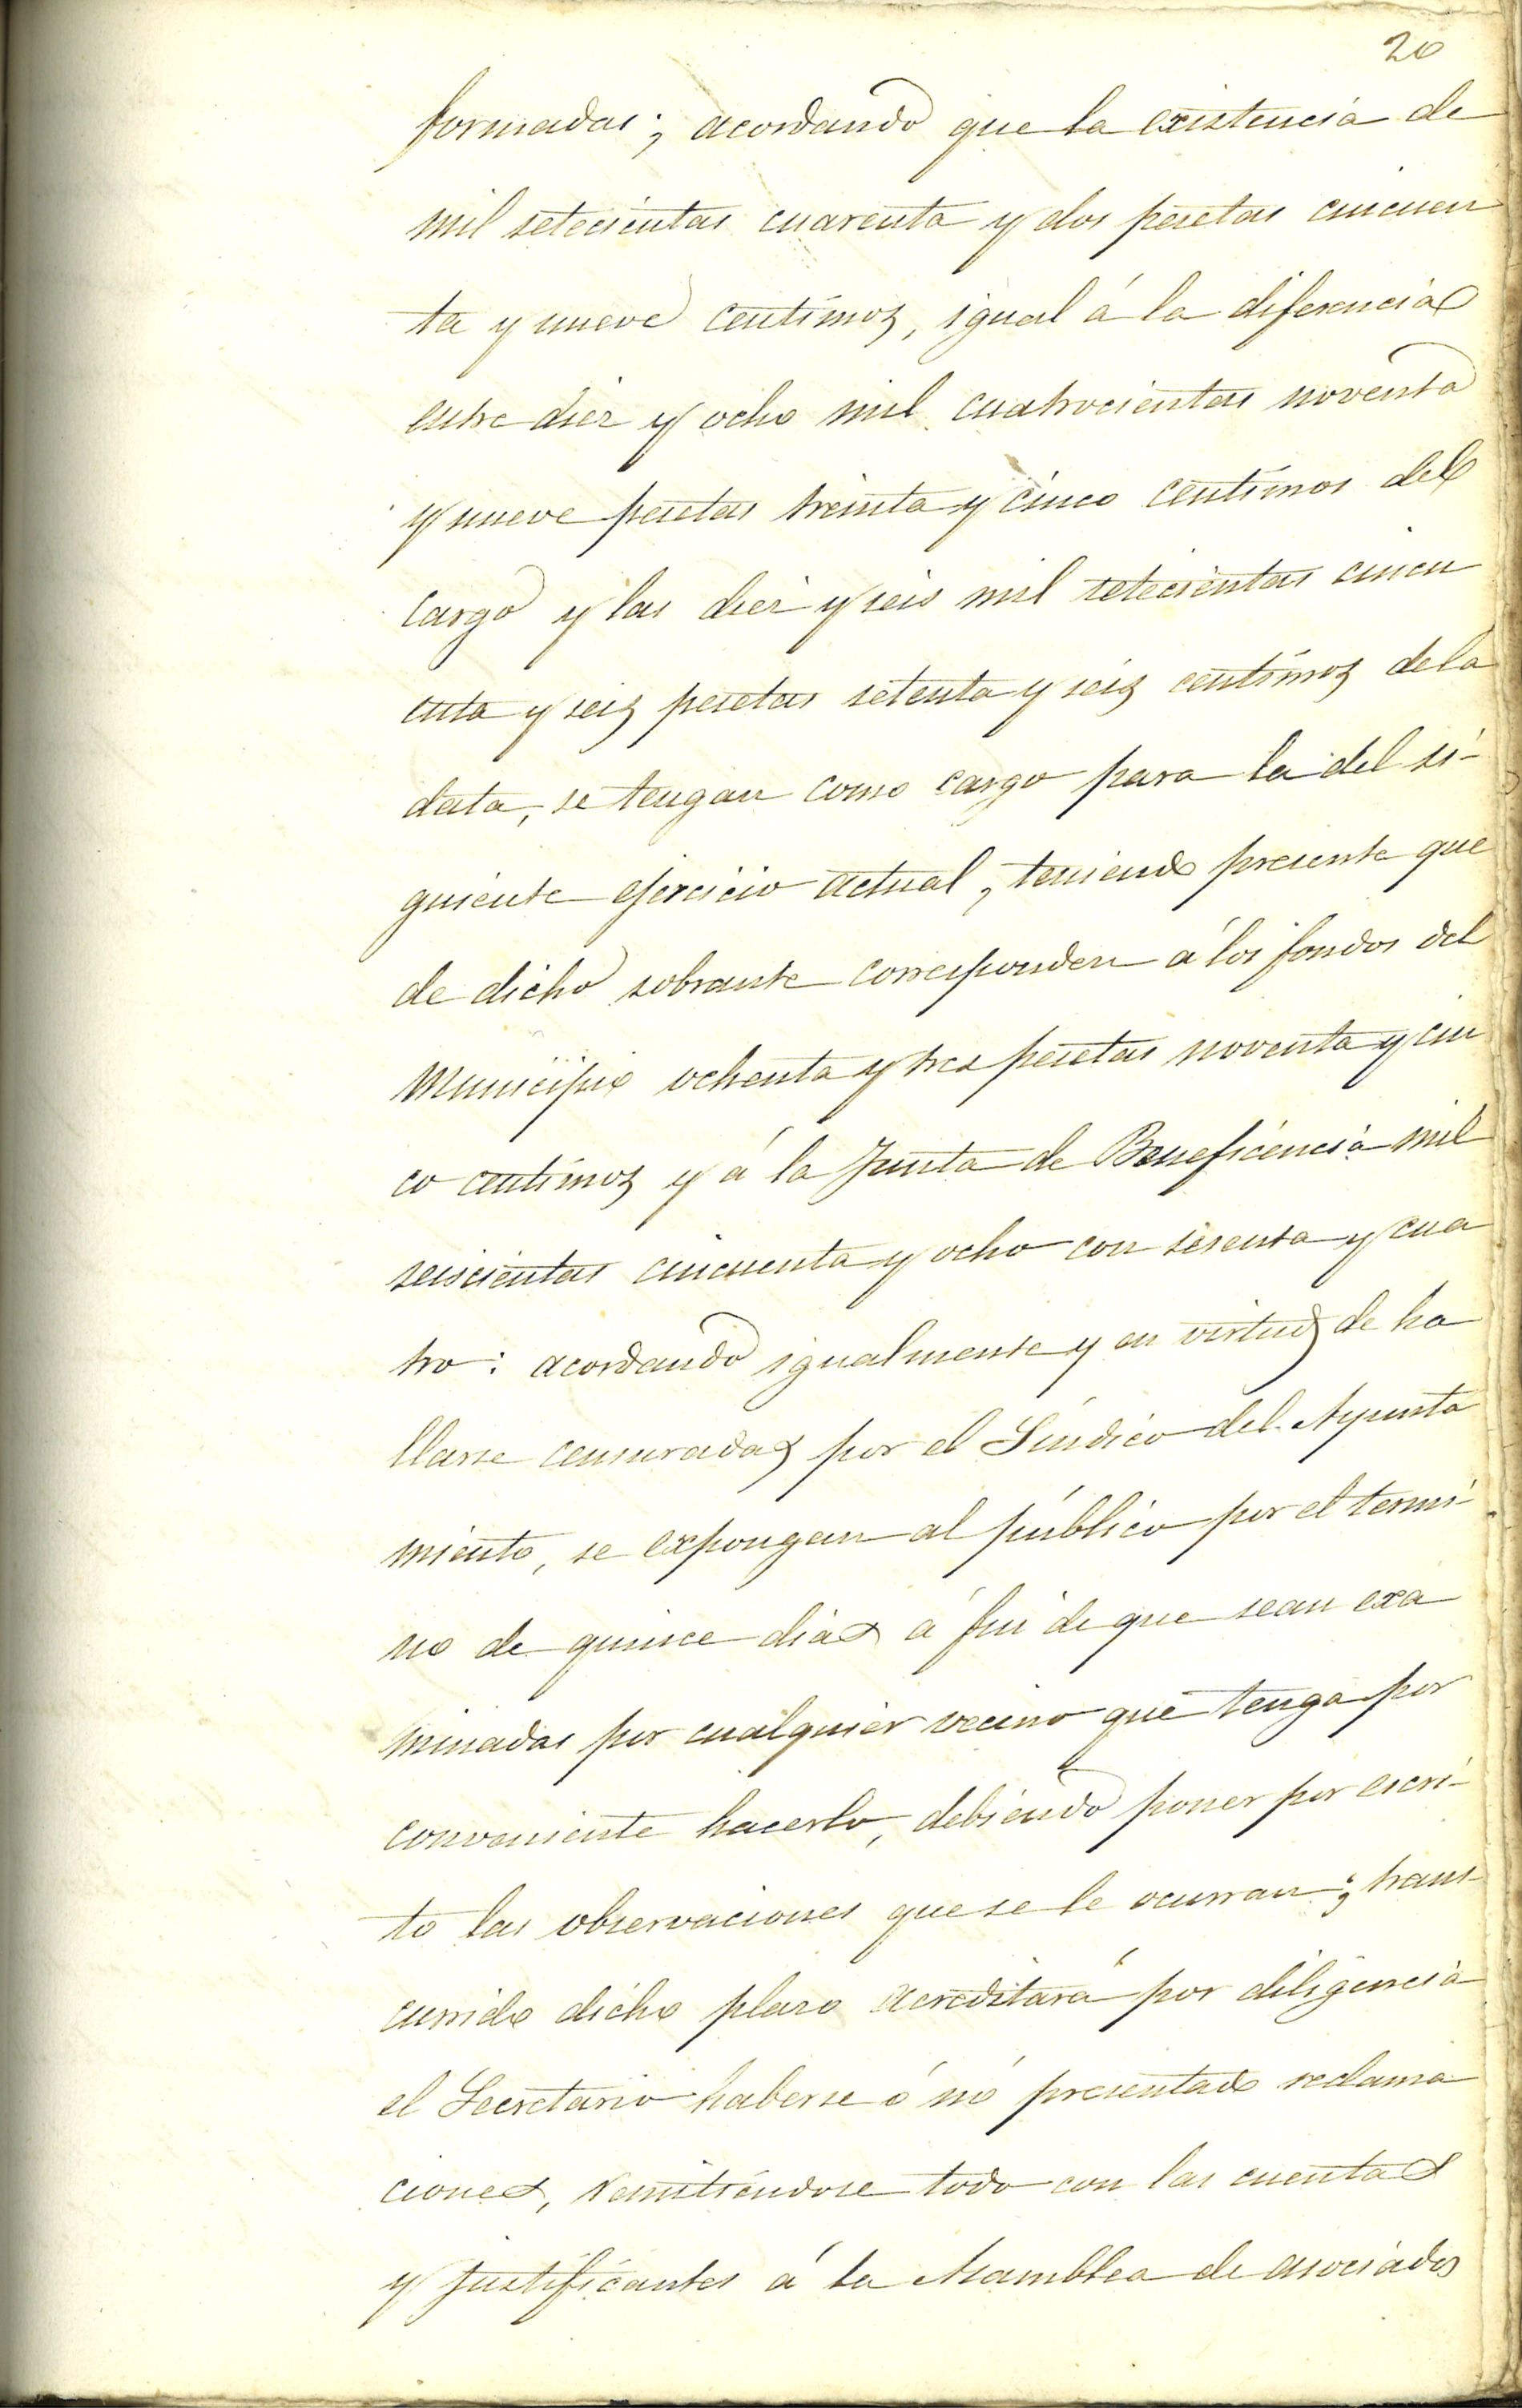 20
formadas; acordando que la existencia de
mil setecientas cuarenta y dos pesetas cincuen
ta y nueve centimos, igual á la diferencia
entre diez y ocho mil cuatrocientas noventa
y nueve pesetas treinta y cinco centimos del
cargo y las diez y seis mil setecientas cincu
enta y seis pesetas setenta y seis centimos de la
data, se tengan como cargo para la del si-
guiente ejercicio actual, teniendo presente que
de dicho sobrante corresponden á los fondos del
Municipio ochenta y tres pesetas noventa y cin
co centimos y á la Junta de Beneficencia mil
seiscientas cincuenta y ocho con sesenta y cua
tro: acordando igualmente y en virtud de ha
llarse censuradas por el Síndico del Ayunta
miento, se expongan al público por el termi-
no de quince dias á fin de que sean exa
minadas por cualquier vecino que tenga por
conveniente hacerlo, debiendo poner por escri-
to las observaciones que se le ocurran; trans-
currido dicho plazo acreditará por diligencia
el Secretario haberse ó nó presentado reclama
ciones, remitiéndose todo con las cuentas
y justificantes á la Asamblea de asociados